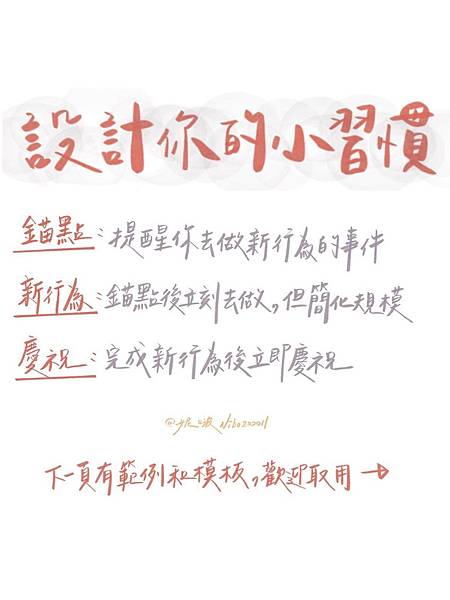 設計你的小習慣
錨點：提醒你去做新行為的事件
新行為：錨點後立刻去做，但簡化規模
慶祝：完成新行為後立即慶祝
下一頁有範例和模板，歡迎取用→